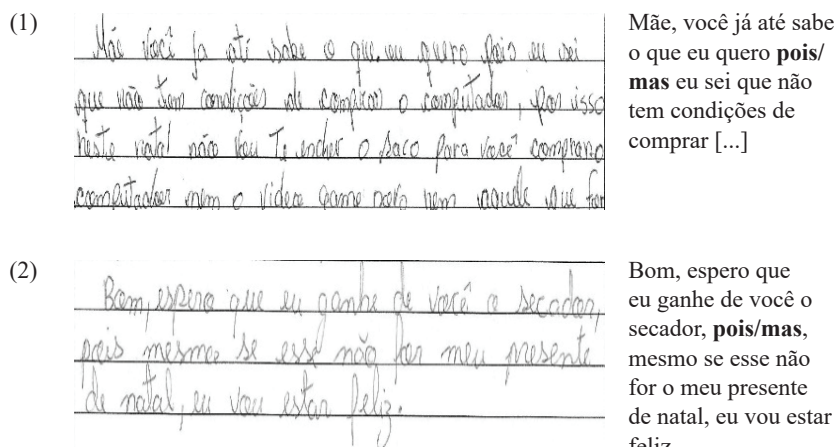 (1)
Mãe você ja até sabe o que eu quero pois eu sei
que não tem condições de comprar o computador, por isso
neste natal não vou te encher o saco para você comprar o
computador nem o video game novo nem aquele que for
Mãe, você já até sabe
o que eu quero pois/
mas eu sei que não
tem condições de
comprar [...]
(2)
Bom, espero que eu ganhe de você o secador,
pois mesmo se esse não for meu presente
de natal, eu vou estar feliz.
Bom, espero que
eu ganhe de você o
secador, pois/mas,
mesmo se esse não
for o meu presente
de natal, eu vou estar
feliz